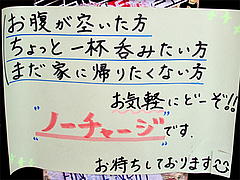 お腹が空いた方
ちょっと一杯呑みたい方
まだ家に帰りたくない方
お気軽にどーぞ!!
"ノーチャージ"です.
お待ちしております